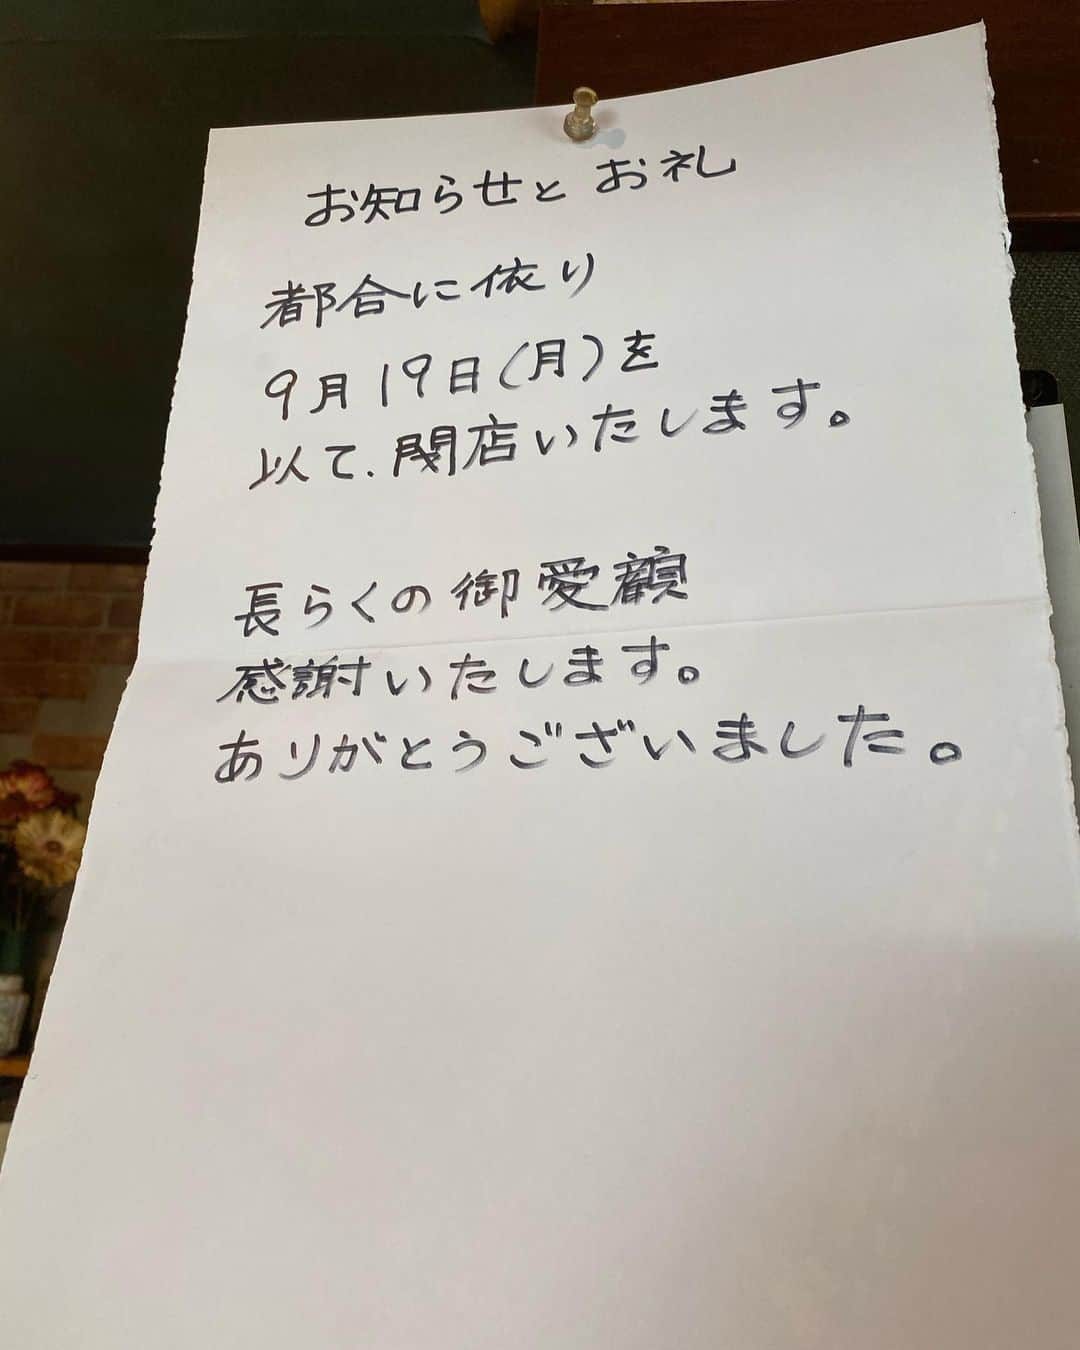 お知らせと お礼
都合に依り
9月19日(月)を
以て、閉店いたします。
長らくの御愛顧
感謝いたします。
ありがとうございました。